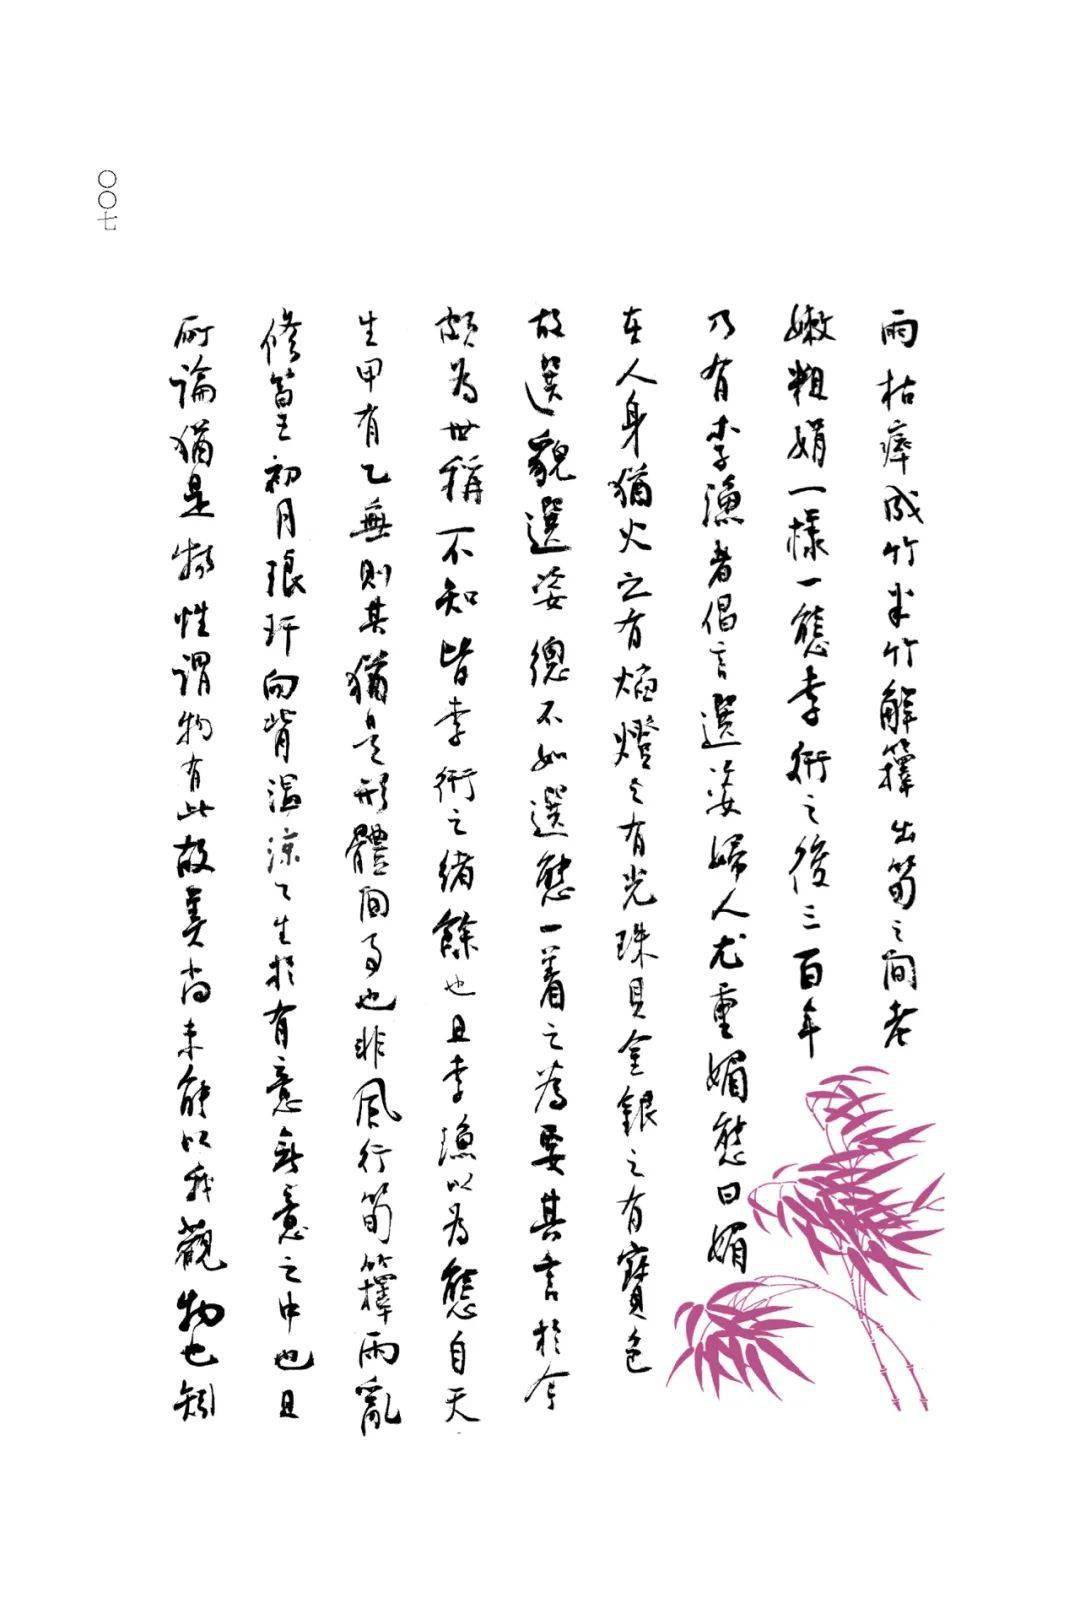 雨枯瘁成竹半竹解籜出筍之間老
嫩粗娟一樣一態李衎之後三百年
乃有李漁者倡言選姿婦人尤重媚態曰媚
在人身猶火之有焰燈之有光珠貝金銀之有寶色
故選貌選姿總不如選態一着之為要其言於今
頗為世稱不知皆李衎之緒餘也且李漁以為態自天
生甲有乙無則其猶是形體間事也非風行筍籜雨亂
修篁初月琅玕向背溫涼之生於有意無意之中也且
所論猶是物性謂物有此故美尚未能以我觀物也矧
〇〇七